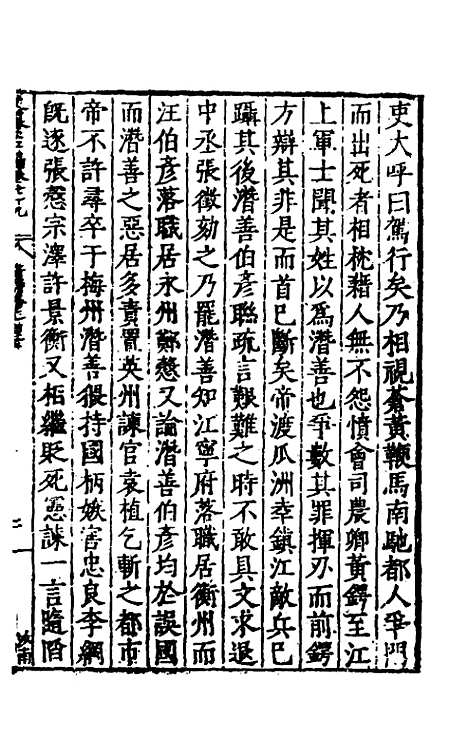 吏大呼曰駕行矣乃相視蒼黃鞭馬南馳都人爭門
而出死者相枕藉人無不怨憤會司農卿黃鍔至江
上軍士聞其姓以爲潛善也爭數其罪揮刃而前鍔
方辯其非是而首已斷矣帝渡瓜洲幸鎮江敵兵已
躡其後潛善伯彥聮疏言艱難之時不敢具文求退
中丞張徵劾之乃罷潛善知江寧府落職居衡州而
汪伯彥落職居永州鄭慤又論潛善伯彥均於誤國
而潛善之惡居多責置英州諫官袁植乞斬之都市
帝不許尋卒于梅州潛善猥持國柄嫉害忠良李綱
旣逐張慤宗澤許景衡又柘繼貶死惡諫一言隨陷